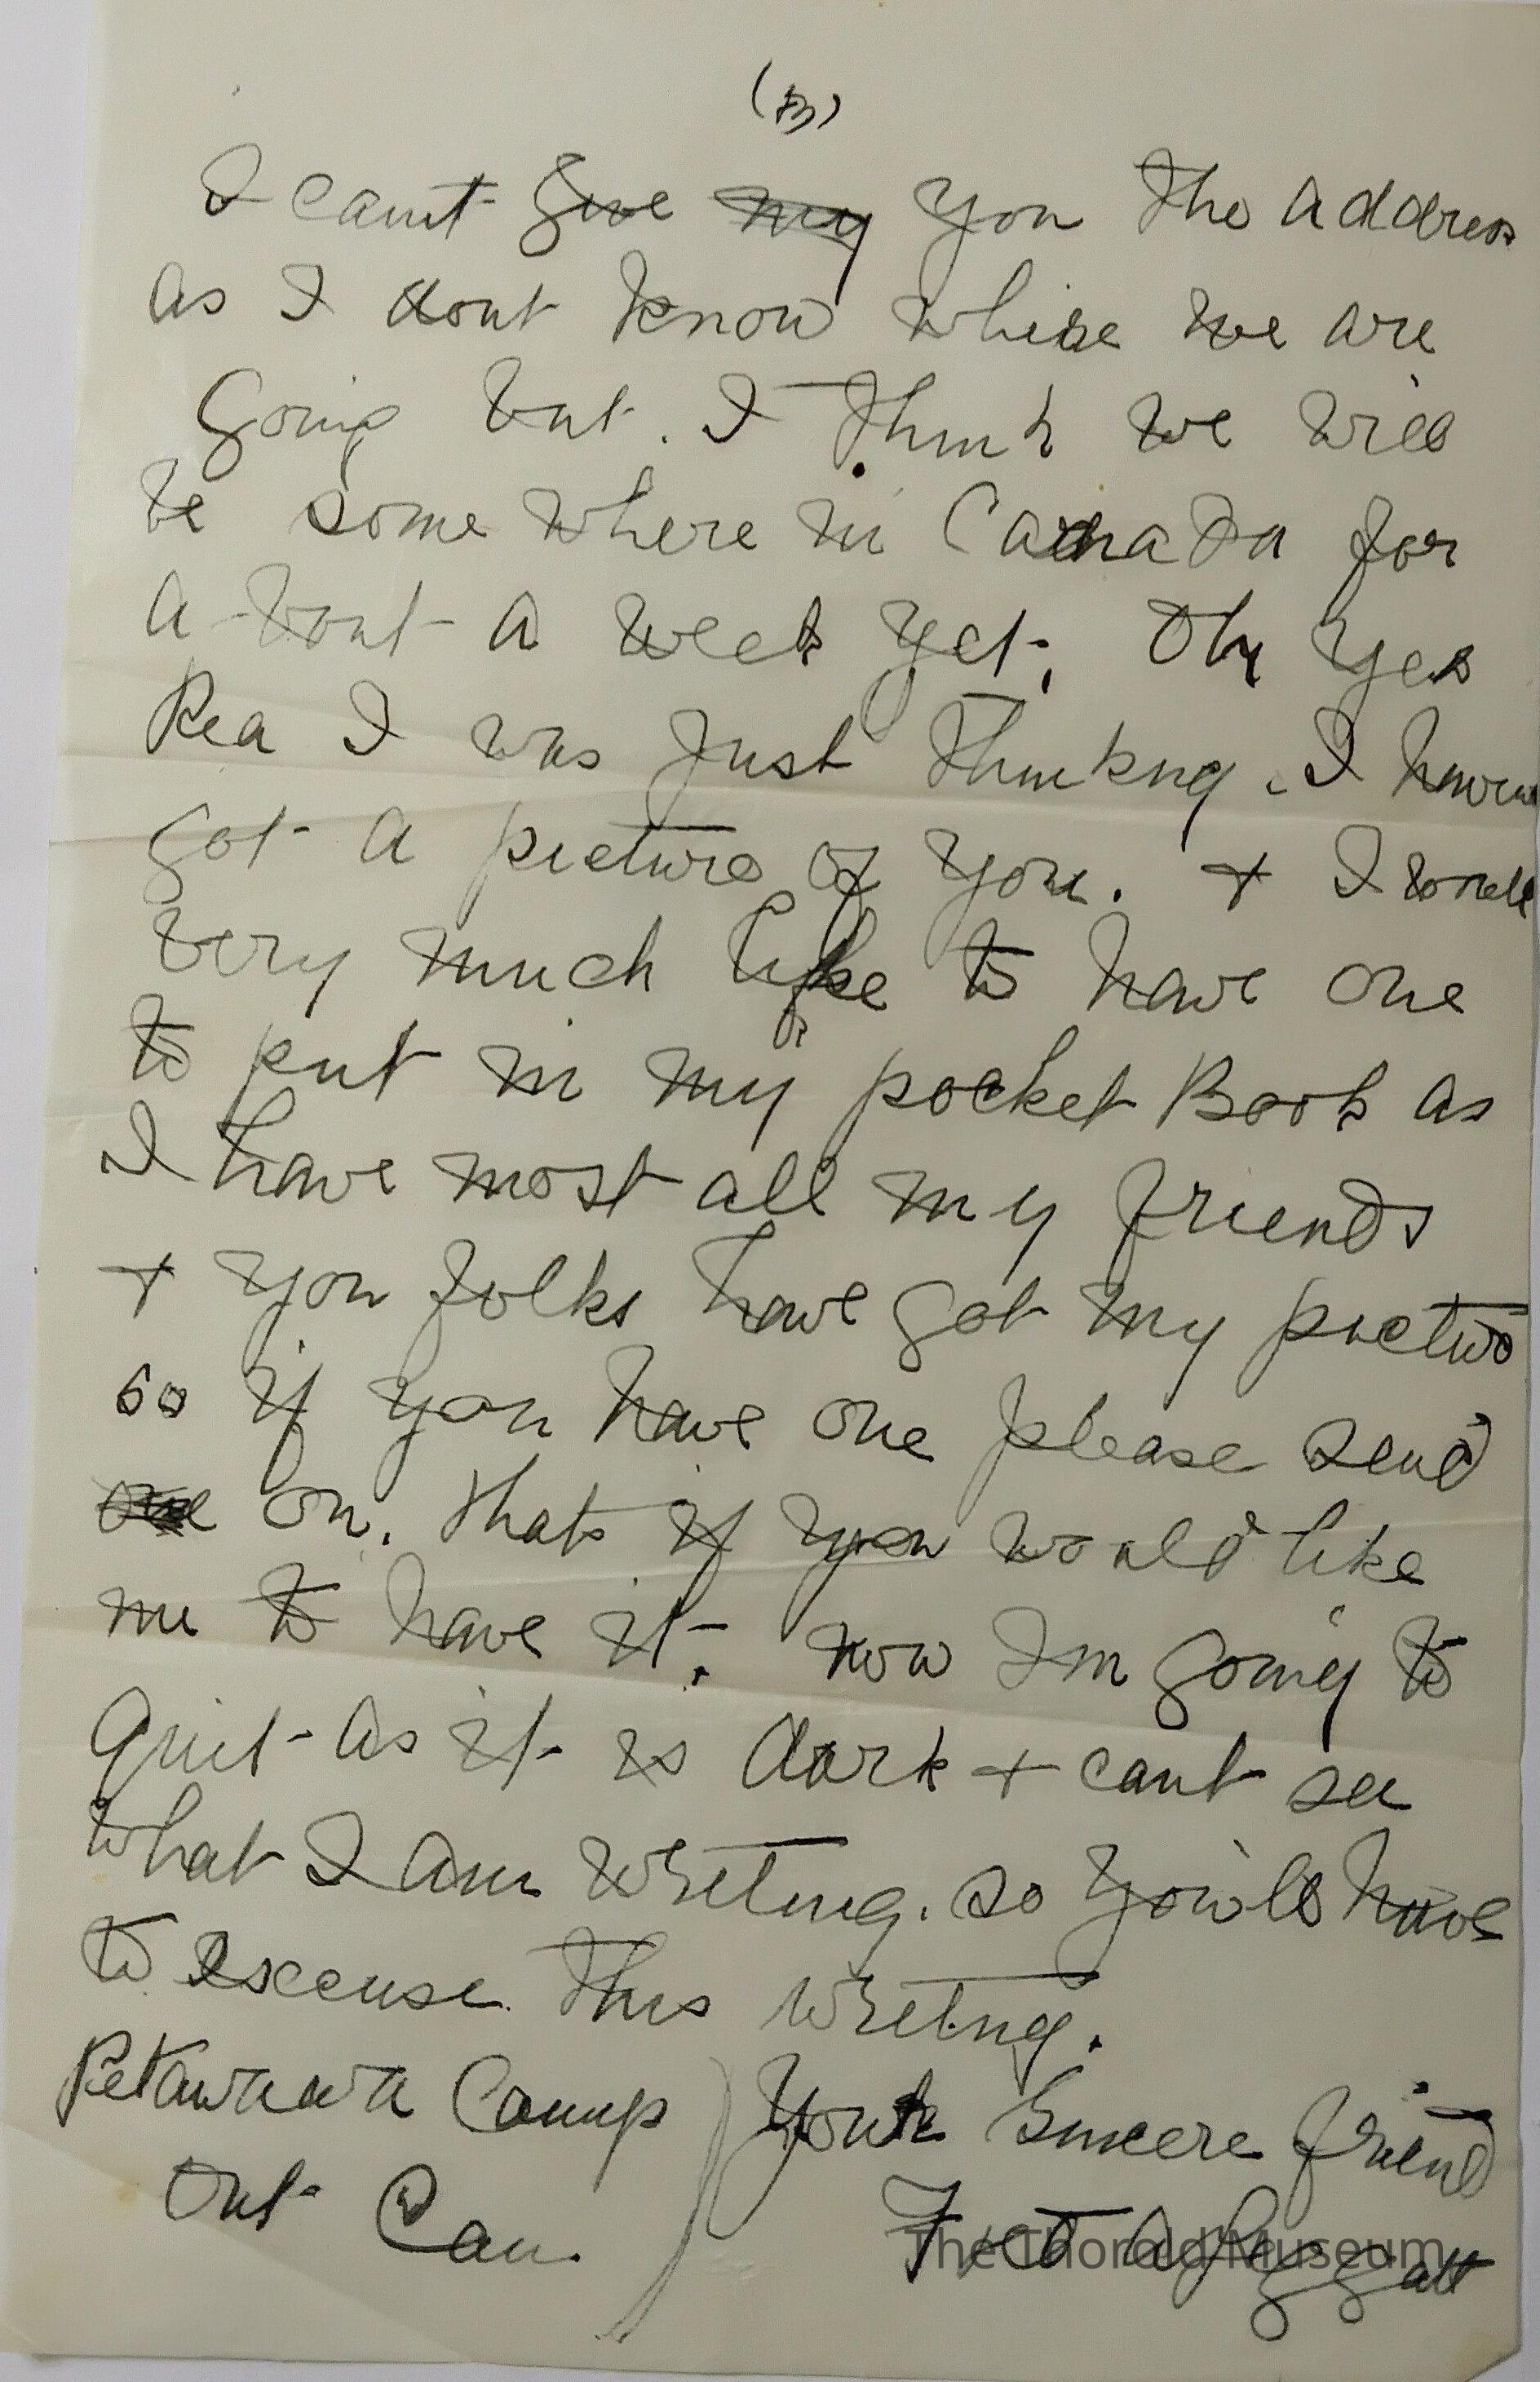 (3)
I cant Give my you the address
as I dont know where we are
Going but. I think we will
be some where in Canada for
a-bout a week yet, Oh yes
Rea I was Just thinkng. I havent
got a picture of you. + I would
very much like to have one
to put in my pocket Book as
I have most all my friends
+ you folks have got my picture
so if you have one please send
one on. thats if you would like
me to have it. now Im going to
quit as it is dark + cant see
what I am writing. so you'll have
to excuse this writng.
Petawawa Camp ) Your Sincere friend
Ont Can. Fred A Peggatt
The Thorold Museum